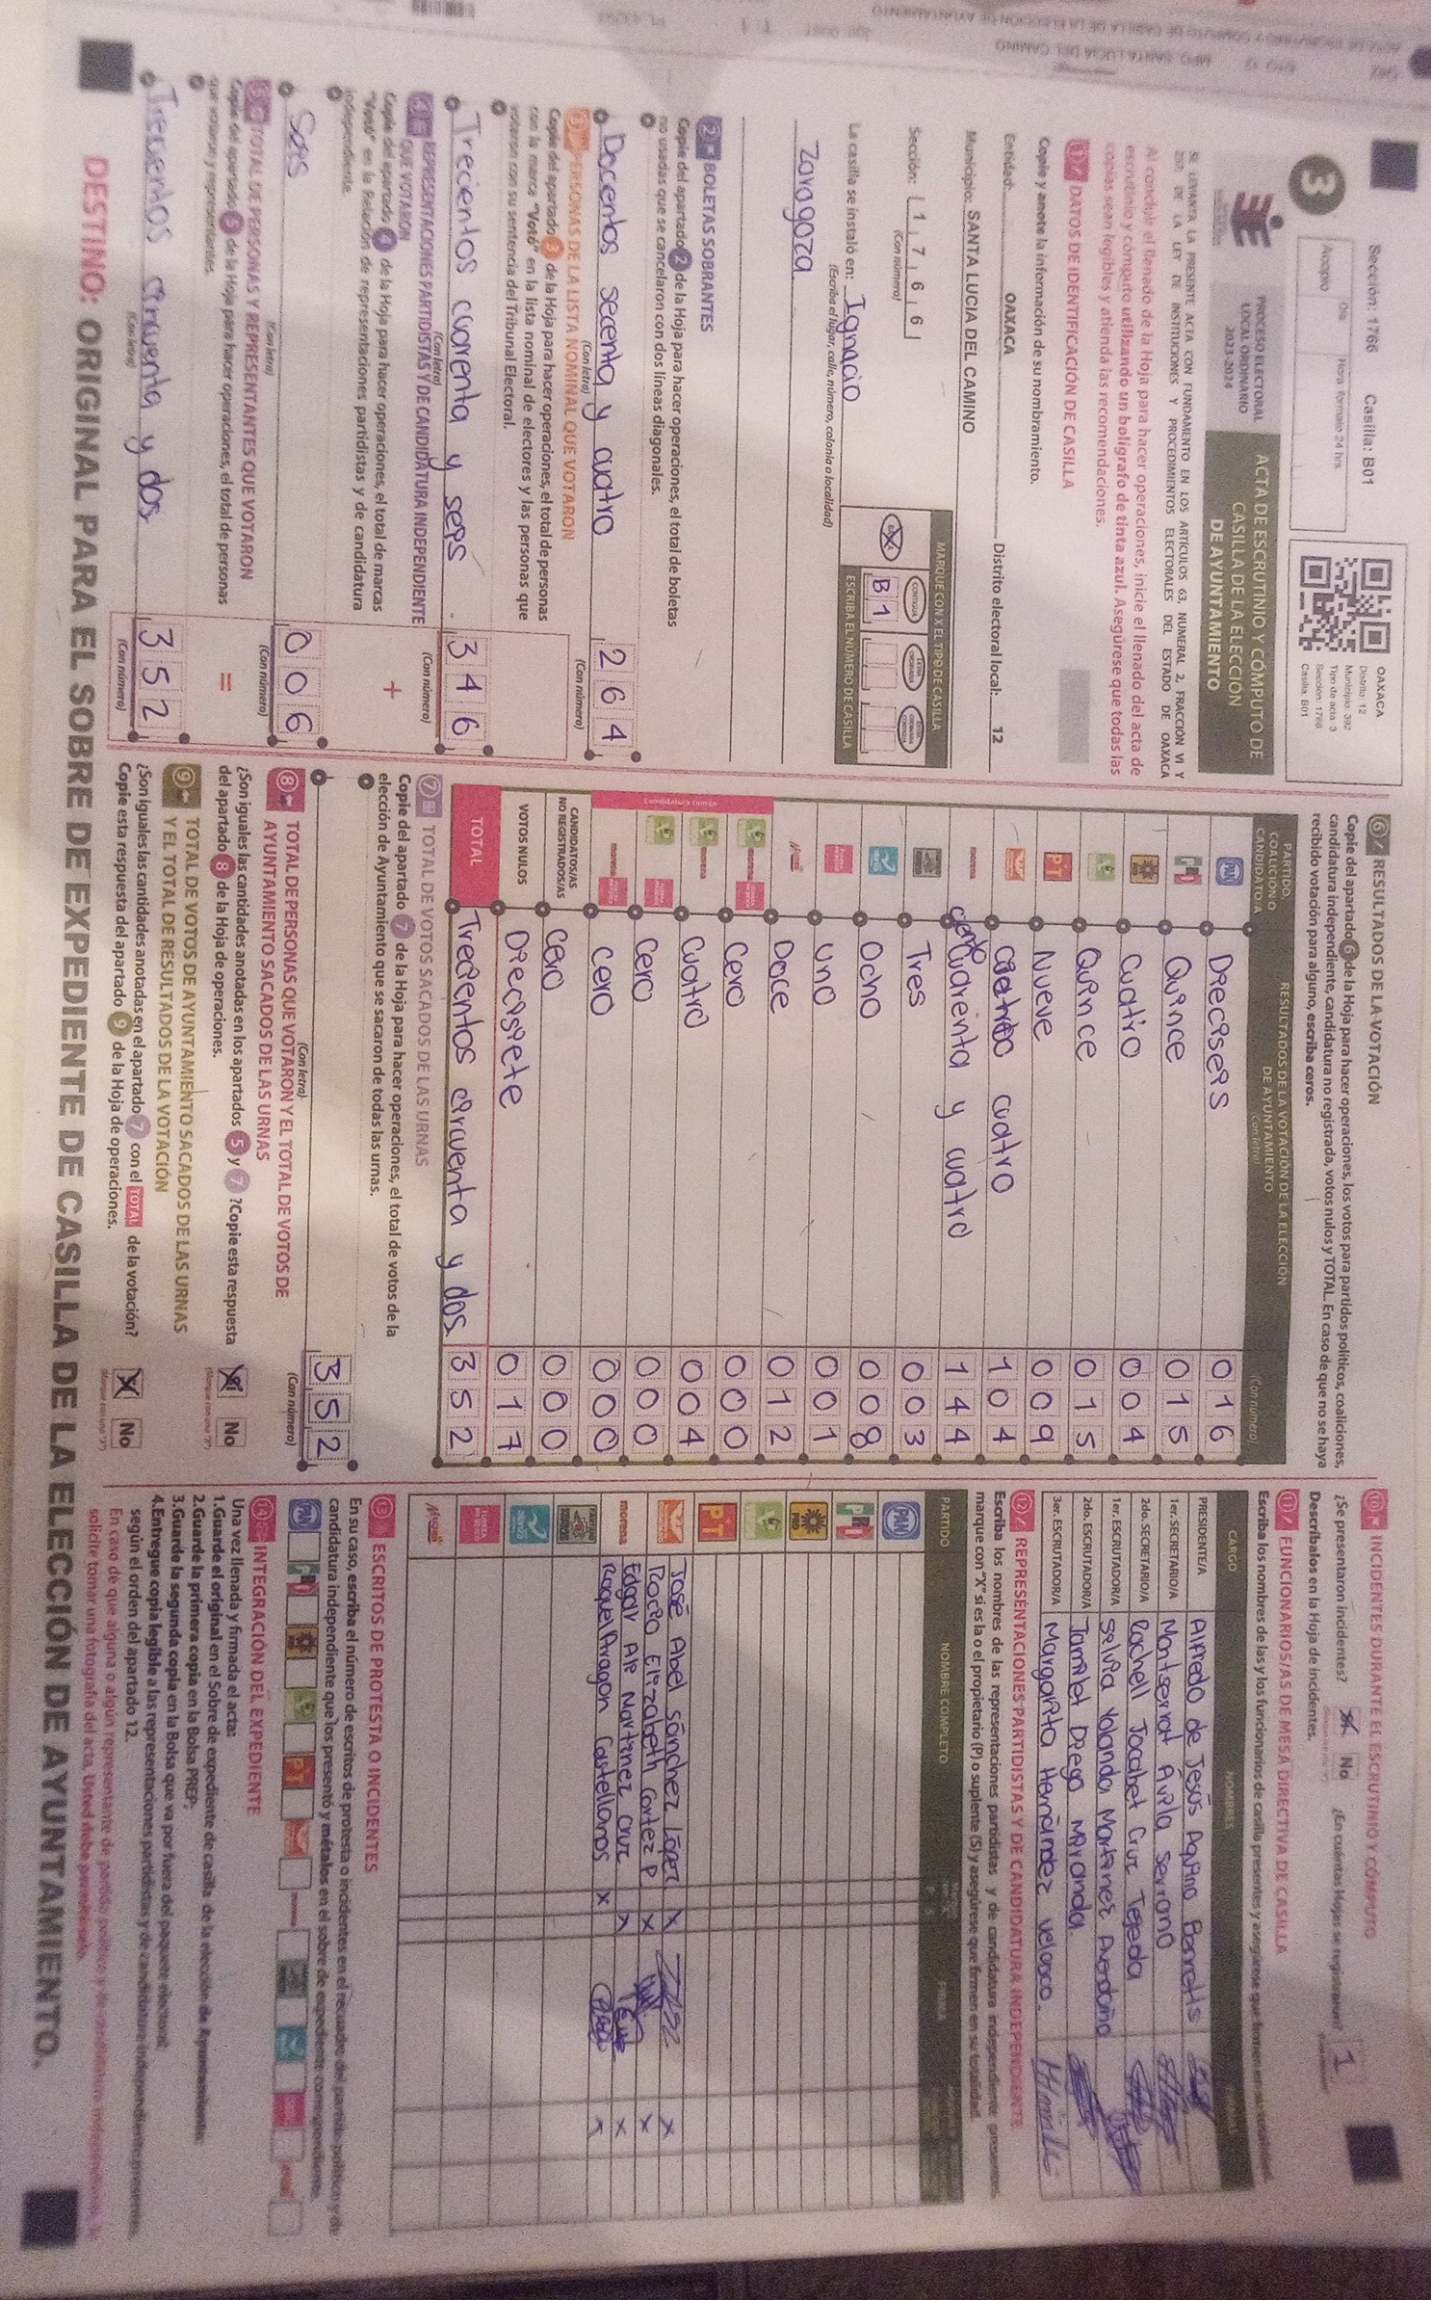 Sección: 1766 Casilla: B01
3
Día Hora formato 24 hrs
Acopio
OAXACA
Distrito: 12
Municipio: 392
Tipo de acta: 3
Sección: 1766
Casilla: B01
PROCESO ELECTORAL
LOCAL ORDINARIO
2023-2024
ACTA DE ESCRUTINIO Y CÓMPUTO DE
CASILLA DE LA ELECCIÓN
DE AYUNTAMIENTO
SE LEVANTA LA PRESENTE ACTA CON FUNDAMENTO EN LOS ARTÍCULOS 63, NUMERAL 2, FRACCIÓN VI Y
257, DE LA LEY DE INSTITUCIONES Y PROCEDIMIENTOS ELECTORALES DEL ESTADO DE OAXACA
Al concluir el llenado de la Hoja para hacer operaciones, inicie el llenado del acta de
escrutinio y cómputo utilizando un bolígrafo de tinta azul. Asegúrese que todas las
copias sean legibles y atienda las recomendaciones.
1 DATOS DE IDENTIFICACIÓN DE CASILLA
Copie y anote la información de su nombramiento.
Entidad: OAXACA Distrito electoral local: 12
Municipio: SANTA LUCIA DEL CAMINO
Sección: 1 7 6 6
(Con número)
MARQUE CON X EL TIPO DE CASILLA
ESCRIBA EL NÚMERO DE CASILLA
B 1
La casilla se instaló en: Ignacio
(Escriba el lugar, calle, número, colonia o localidad)
Zaragoza
2 BOLETAS SOBRANTES
Copie del apartado 2 de la Hoja para hacer operaciones, el total de boletas
no usadas que se cancelaron con dos líneas diagonales.
Docentos secenta y cuatro 2 6 4
(Con letra) (Con número)
3 PERSONAS DE LA LISTA NOMINAL QUE VOTARON
Copie del apartado 3 de la Hoja para hacer operaciones, el total de personas
con la marca "Votó" en la lista nominal de electores y las personas que
votaron con su sentencia del Tribunal Electoral.
Trecientos cuarenta y seis 3 4 6
(Con letra) (Con número)
4 REPRESENTACIONES PARTIDISTAS Y DE CANDIDATURA INDEPENDIENTE
QUE VOTARON
Copie del apartado 4 de la Hoja para hacer operaciones, el total de marcas
"Votó" en la Relación de representaciones partidistas y de candidatura
independiente.
+
Seis 0 0 6
(Con letra) (Con número)
5 TOTAL DE PERSONAS Y REPRESENTANTES QUE VOTARON
Copie del apartado 5 de la Hoja para hacer operaciones, el total de personas
que votaron y representantes.
=
Trecientos cincuenta y dos 3 5 2
(Con letra) (Con número)
6 RESULTADOS DE LA VOTACIÓN
Copie del apartado 6 de la Hoja para hacer operaciones, los votos para partidos políticos, coaliciones,
candidatura independiente, candidatura no registrada, votos nulos y TOTAL. En caso de que no se haya
recibido votación para alguno, escriba ceros.
PARTIDO, COALICIÓN O CANDIDATO/A
RESULTADOS DE LA VOTACIÓN DE LA ELECCIÓN
DE AYUNTAMIENTO
(Con letra) (Con número)
PAN Dieciseis 0 1 6
PRI Quince 0 1 5
Cuatro 0 0 4
Quince 0 1 5
PT Nueve 0 0 9
cuatro 1 0 4
morena ciento cuarenta y cuatro 1 4 4
Tres 0 0 3
Ocho 0 0 8
uno 0 0 1
Doce 0 1 2
Candidatura común
Cero 0 0 0
Cuatro 0 0 4
Cero 0 0 0
Cero 0 0 0
CANDIDATOS/AS
NO REGISTRADOS/AS
Cero 0 0 0
VOTOS NULOS Diecisiete 0 1 7
TOTAL Trecientos cincuenta y dos 3 5 2
7 TOTAL DE VOTOS SACADOS DE LAS URNAS
Copie del apartado 7 de la Hoja para hacer operaciones, el total de votos de la
elección de Ayuntamiento que se sacaron de todas las urnas.
3 5 2
(Con letra) (Con número)
8 TOTAL DE PERSONAS QUE VOTARON Y EL TOTAL DE VOTOS DE
AYUNTAMIENTO SACADOS DE LAS URNAS
¿Son iguales las cantidades anotadas en los apartados 5 y 7 ?Copie esta respuesta
del apartado 8 de la Hoja de operaciones.
Sí No
9 TOTAL DE VOTOS DE AYUNTAMIENTO SACADOS DE LAS URNAS
Y EL TOTAL DE RESULTADOS DE LA VOTACIÓN
¿Son iguales las cantidades anotadas en el apartado 7 con el TOTAL de la votación?
Copie esta respuesta del apartado 9 de la Hoja de operaciones.
No
10 INCIDENTES DURANTE EL ESCRUTINIO Y CÓMPUTO
¿Se presentaron incidentes? Sí No ¿En cuántas Hojas se registraron? 1
Descríbalos en la Hoja de incidentes.
11 FUNCIONARIOS/AS DE MESA DIRECTIVA DE CASILLA
Escriba los nombres de las y los funcionarios de casilla presentes y asegúrese que firmen en su totalidad.
CARGO NOMBRES
PRESIDENTE/A Alfredo de Jesús Aquino
1er. SECRETARIO/A Montserrat Ávila Serrano
2do. SECRETARIO/A Rachell Jocabet Cruz Tejeda
1er. ESCRUTADOR/A Selvia Yolanda Martinez Avendaño
2do. ESCRUTADOR/A Jamilet Diego Miranda
3er. ESCRUTADOR/A Margarita Hernández Velasco
12 REPRESENTACIONES PARTIDISTAS Y DE CANDIDATURA INDEPENDIENTE
Escriba los nombres de las representaciones partidistas y de candidatura independiente presentes,
marque con "X" si es la o el propietario (P) o suplente (S) y asegúrese que firmen en su totalidad.
PARTIDO NOMBRE COMPLETO FIRMA
PAN
PRI
PRD
PT
José Abel Sánchez López X X
morena Rocio Elizabeth Cortez P X X
Edgar Ali Martinez Cruz X X
Raquel Aragon Castellanos X X
13 ESCRITOS DE PROTESTA O INCIDENTES
En su caso, escriba el número de escritos de protesta o incidentes en el recuadro del partido político y de
candidatura independiente que los presentó y métalos en el sobre de expediente correspondiente.
14 INTEGRACIÓN DEL EXPEDIENTE
Una vez llenada y firmada el acta:
1.Guarde el original en el Sobre de expediente de casilla de la elección de Ayuntamiento;
2.Guarde la primera copia en la Bolsa PREP;
3.Guarde la segunda copia en la Bolsa que va por fuera del paquete electoral;
4.Entregue copia legible a las representaciones partidistas y de candidatura independiente presentes,
según el orden del apartado 12.
En caso de que alguna o algún representante de partido político y de candidatura independiente, le
solicite tomar una fotografía del acta, Usted debe permitírselo.
DESTINO: ORIGINAL PARA EL SOBRE DE EXPEDIENTE DE CASILLA DE LA ELECCIÓN DE AYUNTAMIENTO.